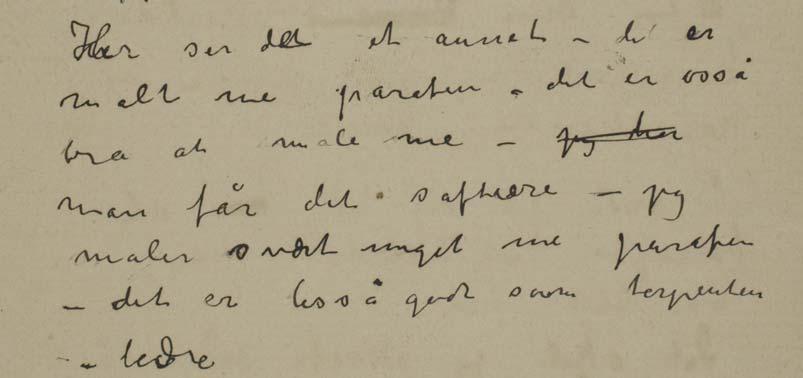 Her ser det et annet – de er
malt me parafen – det er osså
bra at male me – jeg har
man får det saftiære – jeg
maler svært meget me parafen
– det er lisså godt som terpenten
– bedre